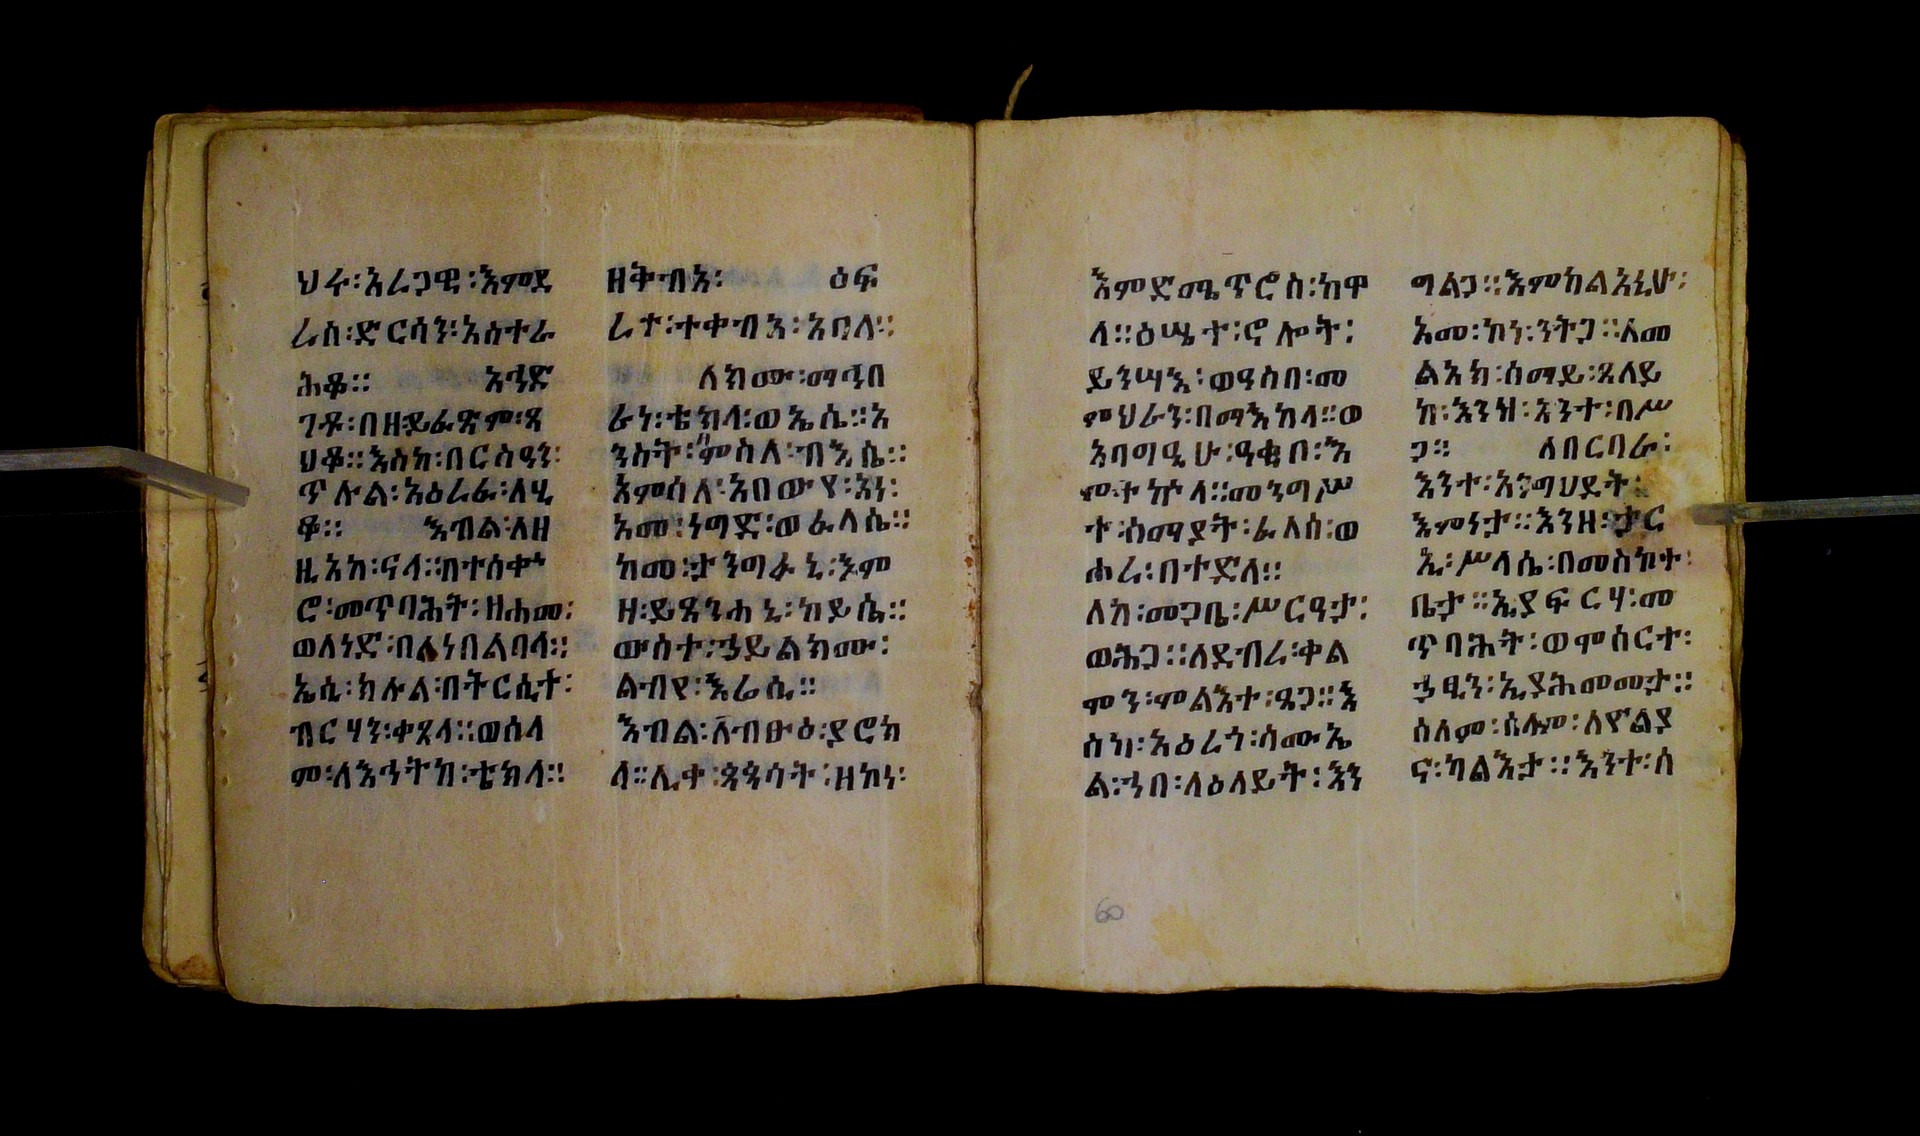 ህሩ፡አረጋዊ፡እምደ
ረስ፡ድርሳን፡አስተራ
ሕቆ። አኀድ
ገዶ፡በዘይፈጽም፡ጻ
ህቆ። እስከ፡በርስዓን፡
ጥሉል፡አዕረፉ፡ለሂ
ቆ። እብል፡ለዘ
ዚአከ፡ናላ። በተሰቀ
ሮ፡መጥባሕት፡ዘሐመ፡
ወለነድ፡በልነበልባላ።
ኤሲ፡ክሉል፡በትርሲተ፡
ብርሃን፡ቀጸላ። ወሰላ
ም፡ለእኅትከ፡ቴክላ።
ዘቅብአ፡ ዕፍ
ረተ፡ተቀብአ፡አባለ።
ለክሙ፡ማኅበ
ራነ፡ቴክላ፡ወኤሴ። አ
ንስት፡ምስለ፡ብእሴ።
እምሰለ፡አበውየ፡እነ፡
አመ፡ነግድ፡ወፈላሴ።
ከመ፡ታንግፉኒ፡እም
ዘ፡ይጼንሐኒ፡ከይሴ።
ውስተ፡ኃይልክሙ፡
ልብየ፡እሬሲ።
እብል፡ለብፁዕ፡ያሮክ
ላ። ሊቀ፡ጳጳሳት፡ዘከነ፡
እምድሜጥሮስ፡ከዋ
ላ። ዕሤተ፡ሮሎት፡
ይንሣእ፡ወዓስበ፡መ
ምህራን፡በማእከላ። ወ
አባግዒሁ፡ዓቂበ፡እ
ሞተኵላ። መንግሥ
ተ፡ሰማያት፡ፈለሰ፡ወ
ሐረ፡በተድላ።
ለከ፡መጋቤ፡ሥርዓታ፡
ወሕጋ። ለደብረ፡ቀል
ሞን፡ምልእተ፡ጸጋ። እ
ስከ፡አዕረጎ፡ሳሙኤ
ል፡ኀበ፡ለዕላይት፡እን
ግልጋ። እምከልአኒሁ፡
አመ፡ኮነ፡ንትጋ። ለመ
ልአክ፡ሰማይ፡ጸለይ
ከ፡እንዝ፡እንተ፡በሥ
ጋ። ለበርባራ፡
እንተ፡አንግህደት፡
እምነታ። እንዘ፡ታር
ኢ፡ሥላሴ፡በመስኮተ፡
ቤታ። ኢያፍርሃ፡መ
ጥባሕት፡ወሞሰርተ፡
ኃፂን፡ኢያሕመመታ።
ሰላም፡ሰላም፡ለዮልያ
ና፡ካልእታ። እንተ፡ሰ
60